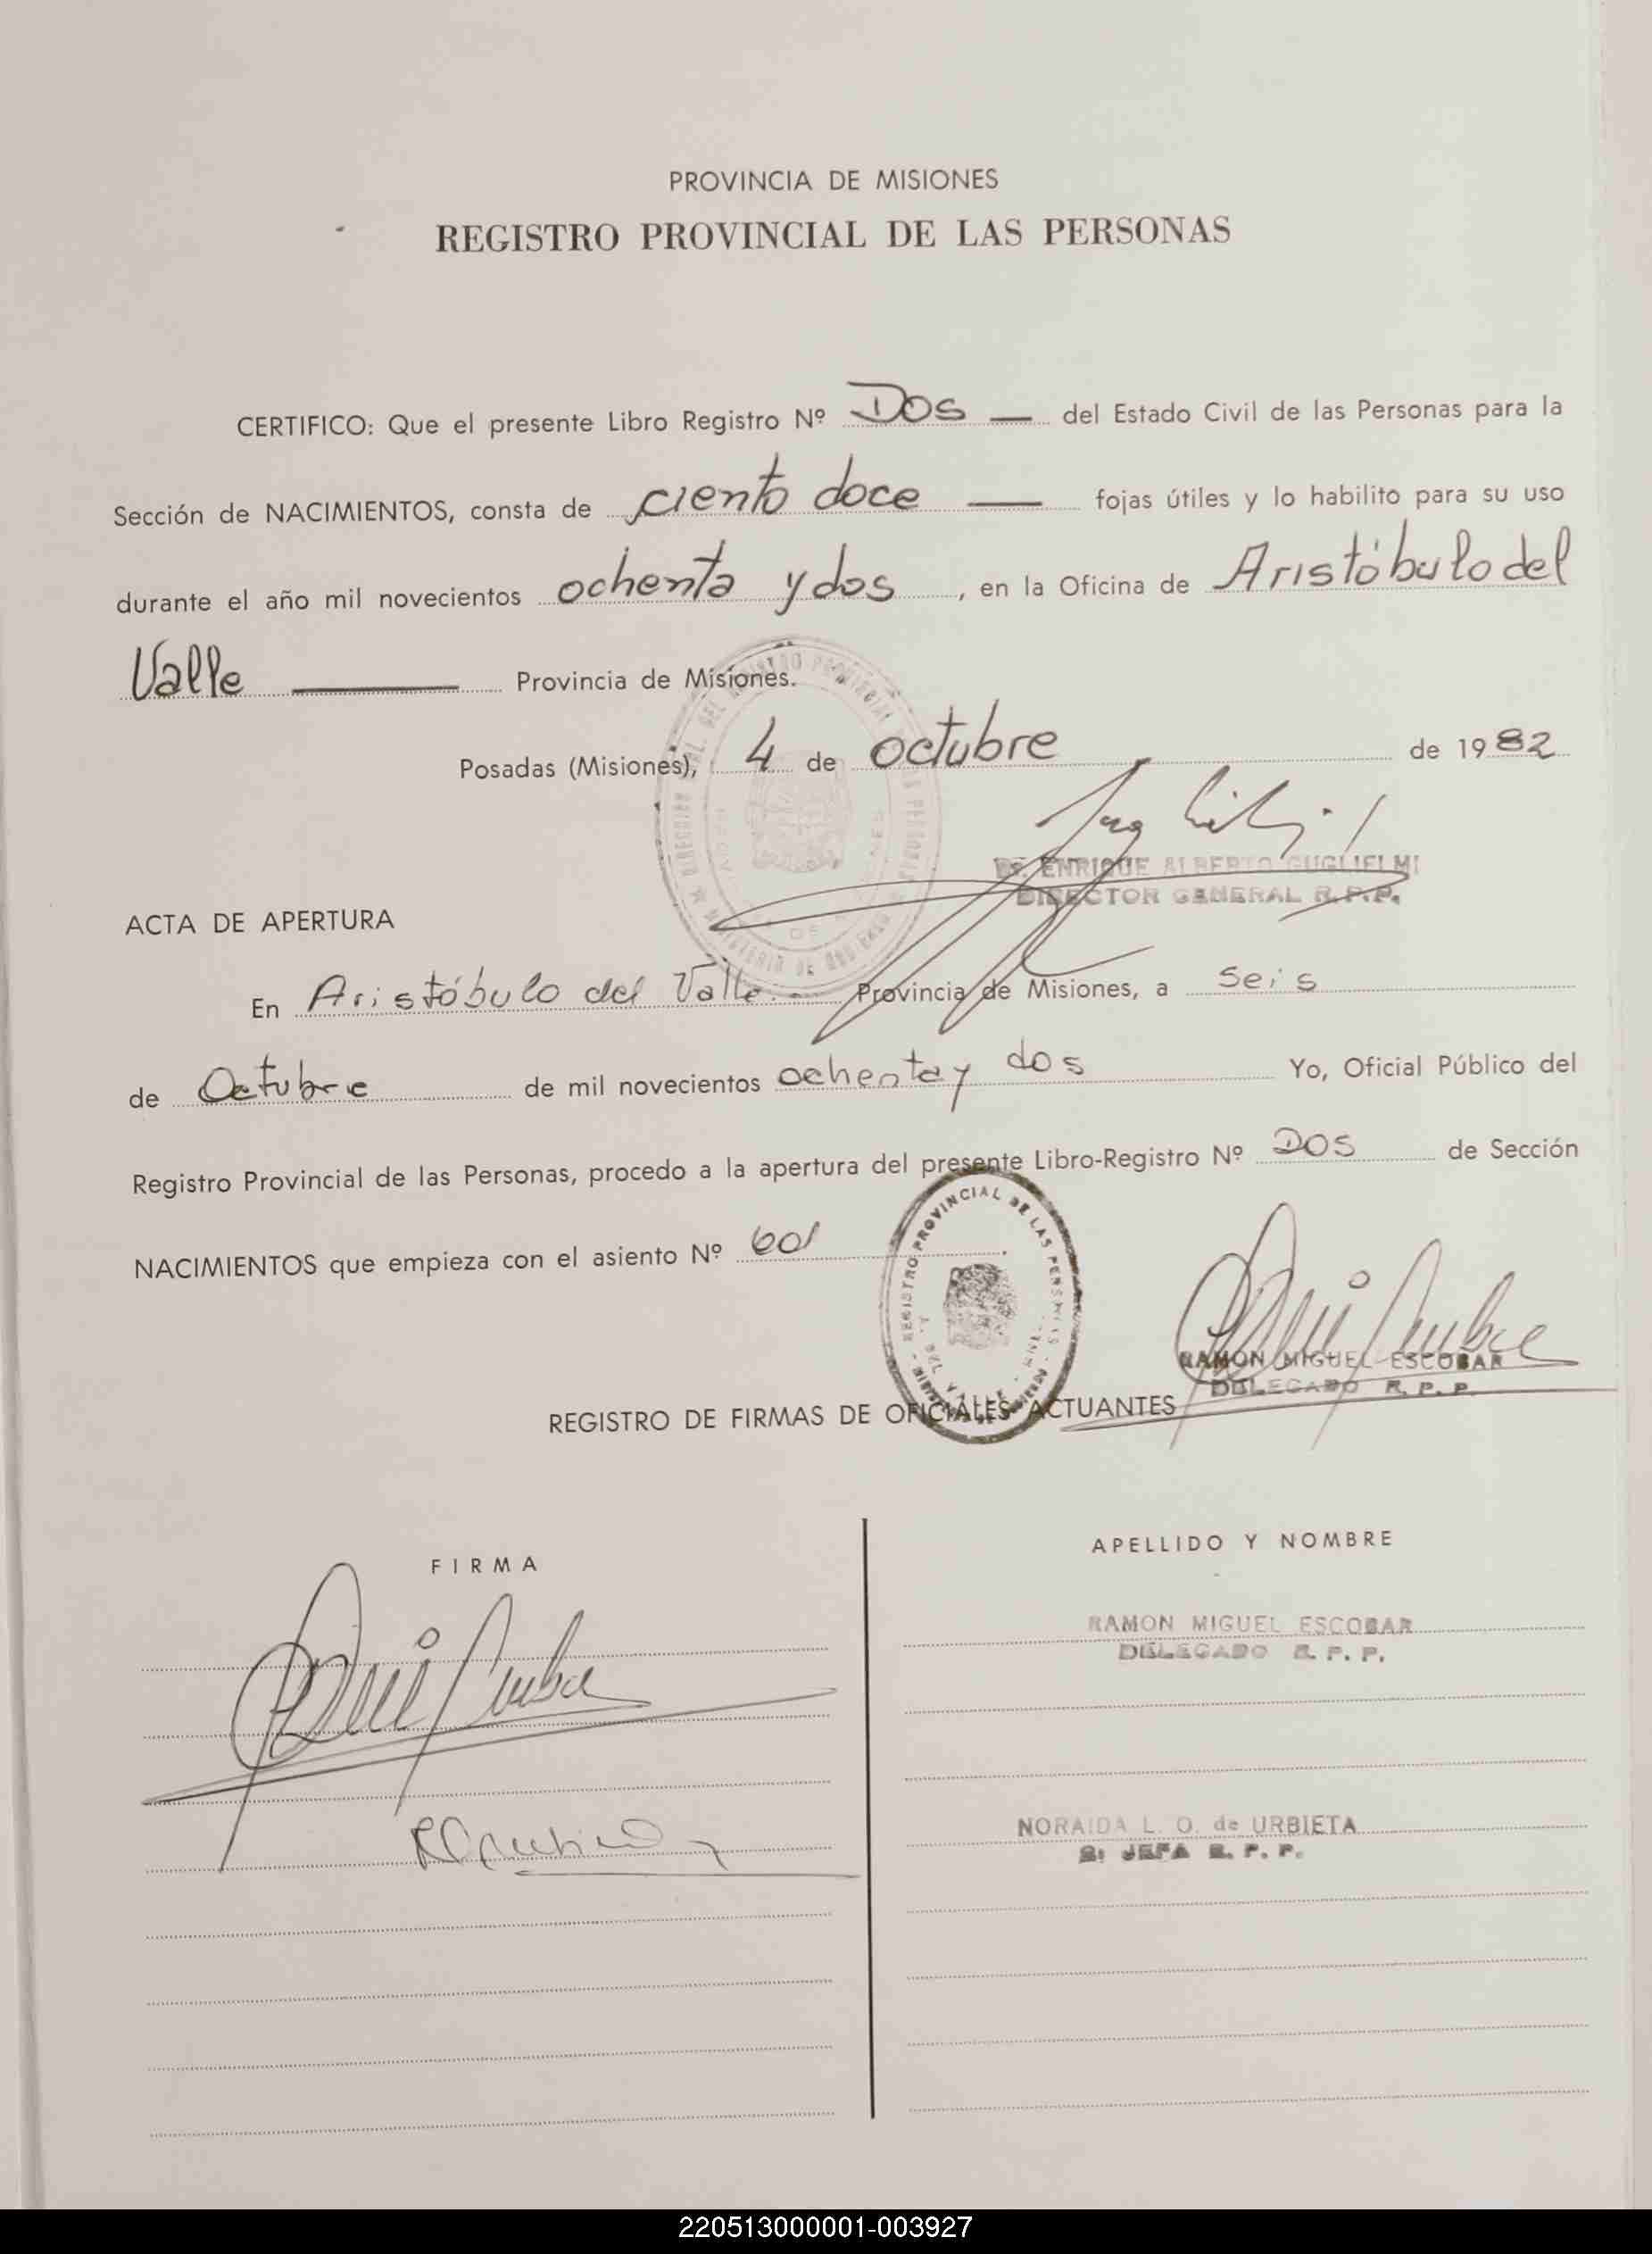 PROVINCIA DE MISIONES
REGISTRO PROVINCIAL DE LAS PERSONAS
CERTIFICO: Que el presente Libro Registro Nº Dos — del Estado Civil de las Personas para la
Sección de NACIMIENTOS, consta de ciento doce — fojas útiles y lo habilito para su uso
durante el año mil novecientos ochenta y dos, en la Oficina de Aristóbulo del
Valle — Provincia de Misiones.
Posadas (Misiones), 4 de octubre de 1982
ENRIQUE ALBERTO GUGLIELMI
DIRECTOR GENERAL R.P.P.
ACTA DE APERTURA
En Aristóbulo del Valle.- Provincia de Misiones, a Seis
de Octubre de mil novecientos ochenta y dos Yo, Oficial Público del
Registro Provincial de las Personas, procedo a la apertura del presente Libro-Registro Nº DOS de Sección
NACIMIENTOS que empieza con el asiento Nº 601.
REGISTRO PROVINCIAL DE LAS PERSONAS
RAMON MIGUEL ESCOBAR
DELEGADO R. P. P.
REGISTRO DE FIRMAS DE OFICIALES ACTUANTES
FIRMA
APELLIDO Y NOMBRE
RAMON MIGUEL ESCOBAR
DELEGADO R. P. P.
NORAIDA L. O. de URBIETA
JEFA R. P. P.
220513000001-003927